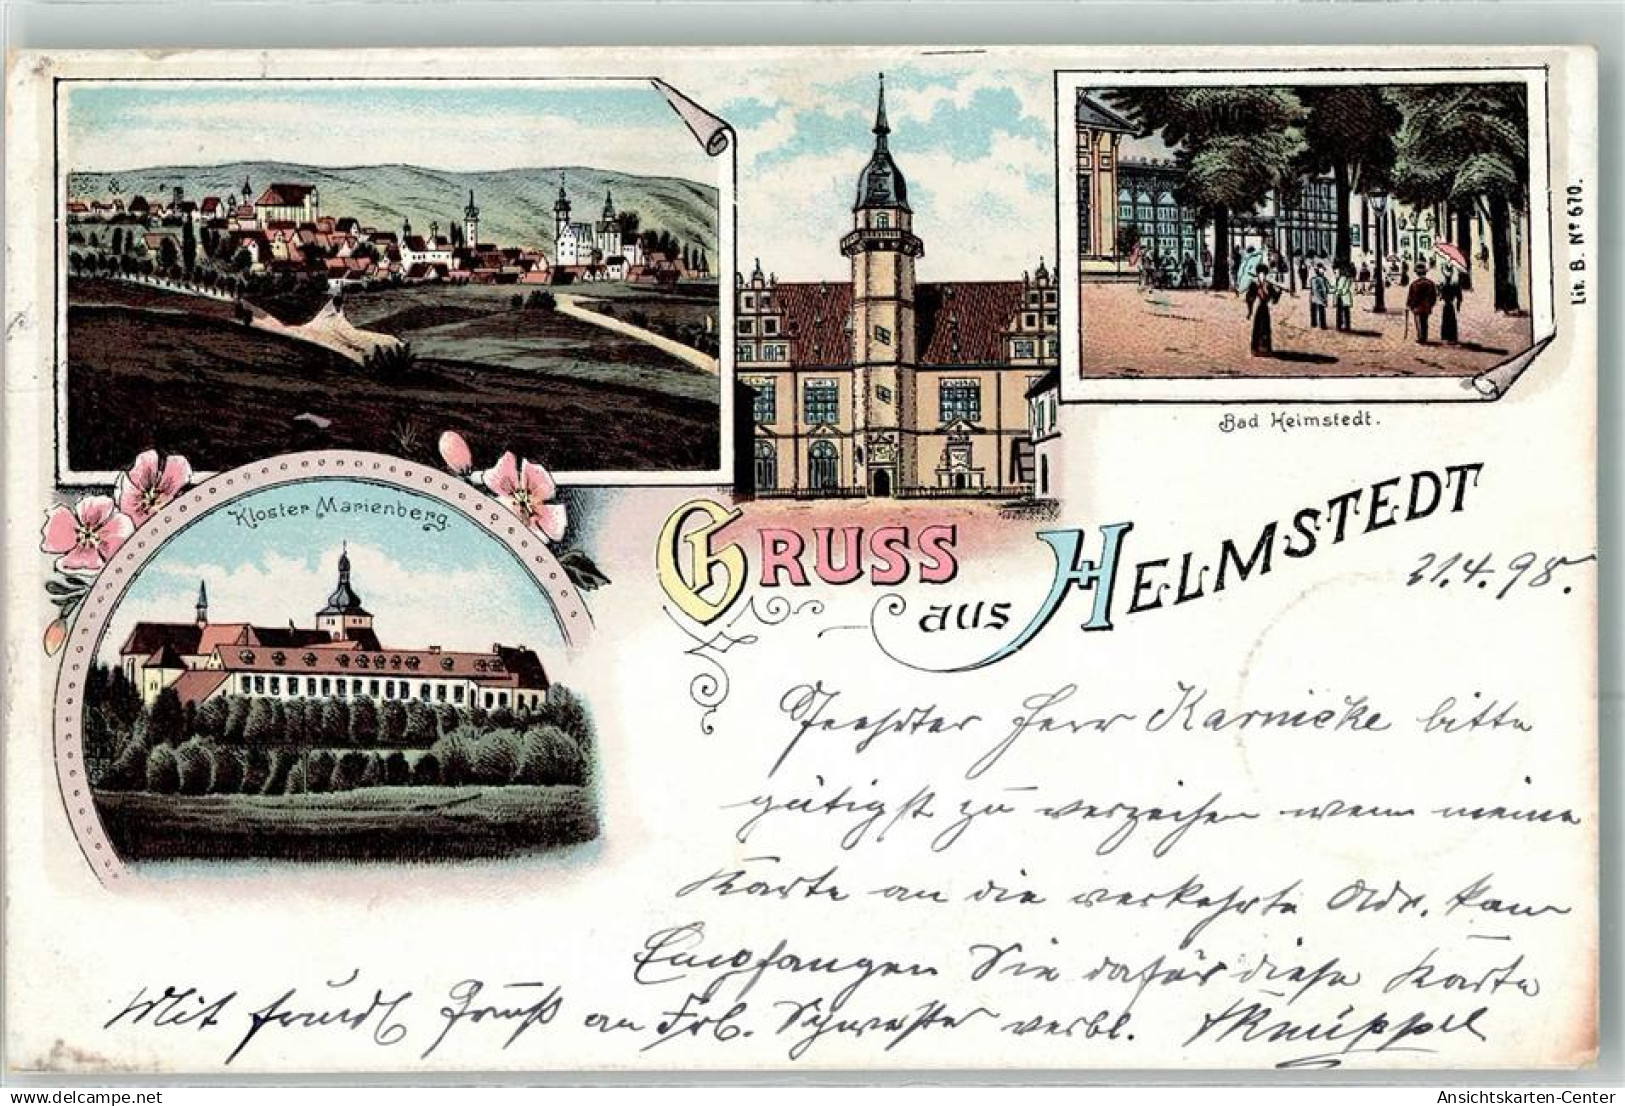 Lit. B. No 670.
Bad Helmstedt.
Kloster Marienberg.
GRUSS aus HELMSTEDT
21.4.98.
Geehrter Herr Karnicke bitte
gütigst zu verzeihen wenn meine
Karte an die verkehrte Adr. kam
Empfangen Sie dafür diese Karte
Mit freundl Gruß an Frl. Schwester verbl. Knüppel
Ansichtskarten-Center